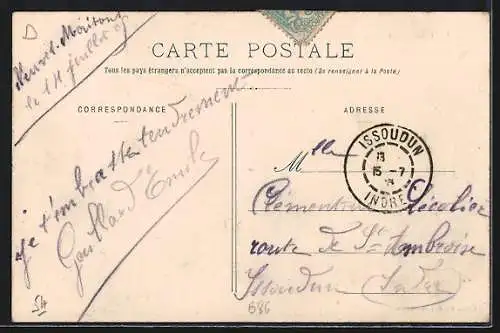 D
le 14 juillet
CARTE POSTALE
Tous les pays étrangers n'acceptent pas la correspondance au recto (Se renseigner à la Poste)
CORRESPONDANCE
ADRESSE
je t'embrasse tendrement
Emile
ISSOUDUN
15 -7
INDRE
Mlle
Clémentine Lécolier
route de St Ambroise
Issoudun Indre
54
686